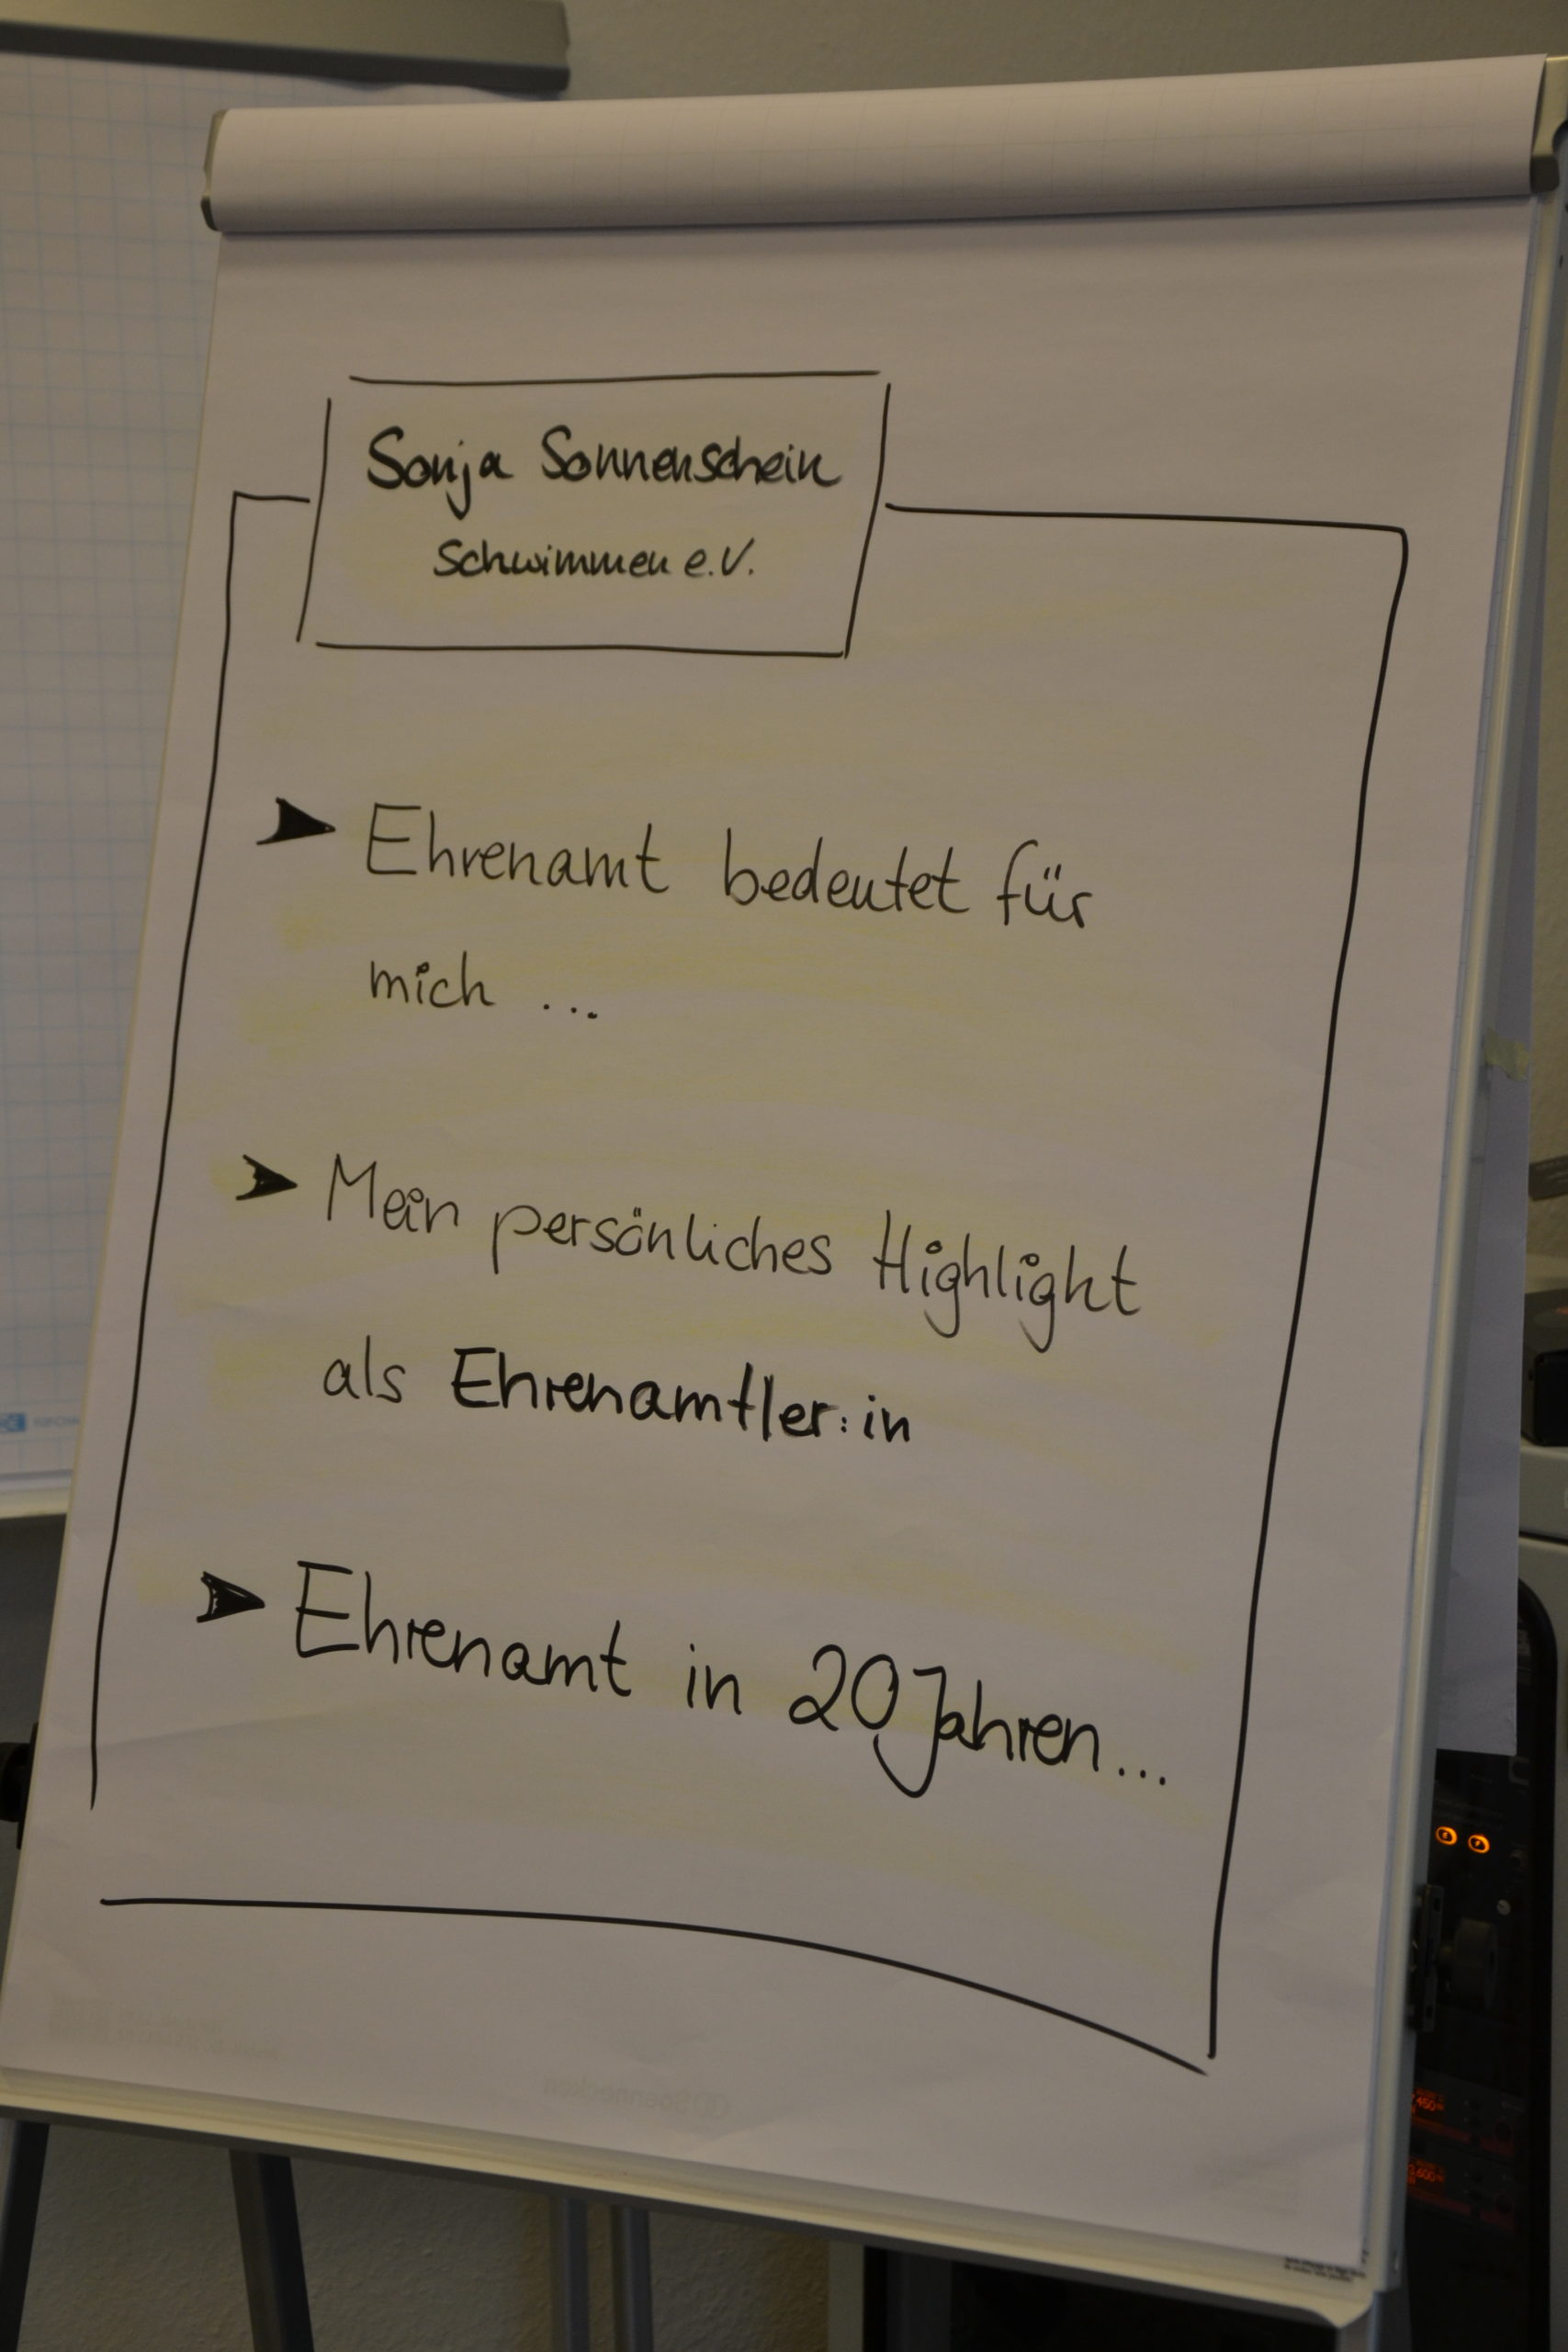 Sonja Sonnenschein
Schwimmen e.V.
➤ Ehrenamt bedeutet für
mich ...
➤ Mein persönliches Highlight
als Ehrenamtler:in
➤ Ehrenamt in 20 Jahren...